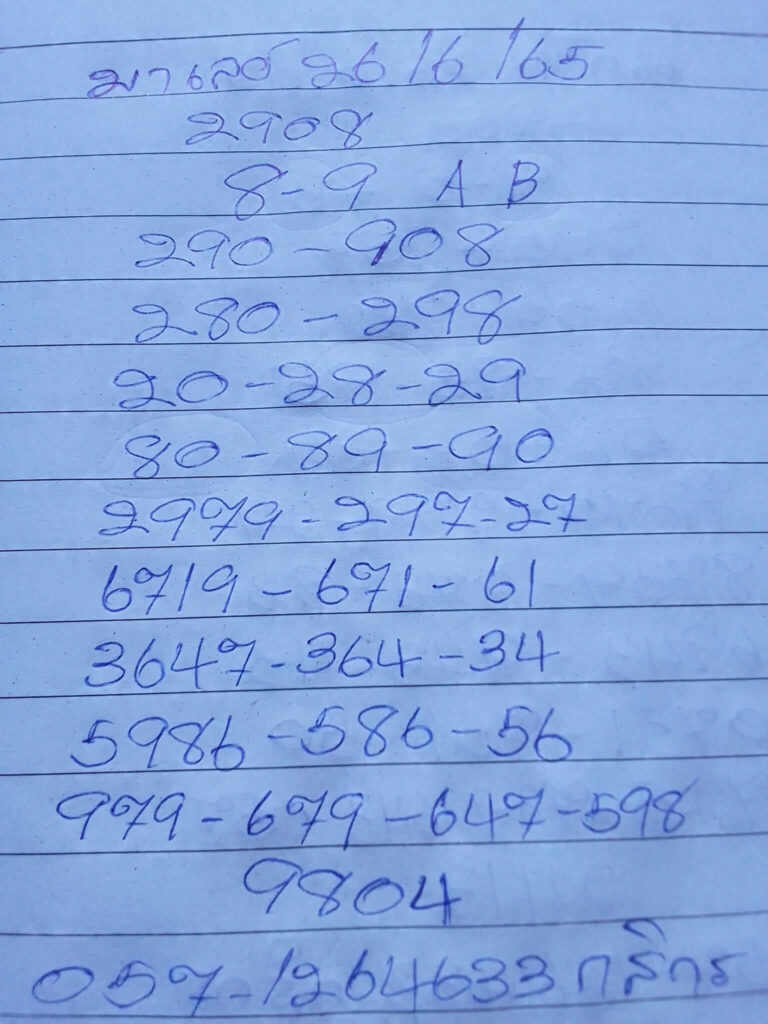 มาเลย์ 26/6/65
2908
8-9 A B
290-908
280-298
20-28-29
80-89-90
2979-297-27
6719-671-61
3647-364-34
5986-586-56
979-679-647-598
9804
057-1264633 กสิกร